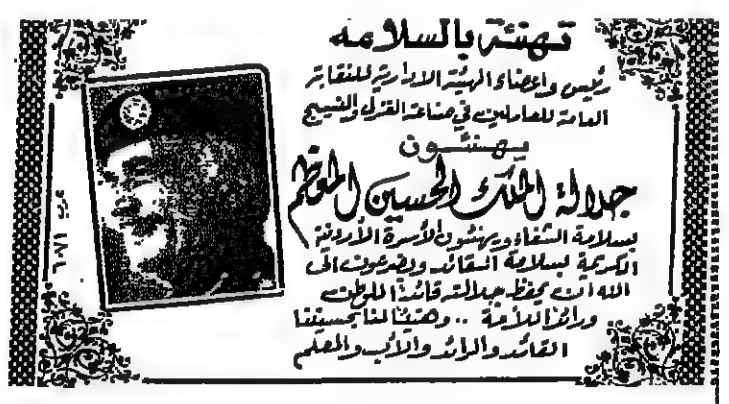 تهنئة بالسلامه
رئيس واعضاء الهيئة الادارية للنقابة
العامة للعاملين في صناعة الغزل والنسيج
يهنئــون
جلالة الملك الحسين المعظم
بسلامة الشفاء ويهنئون الأسرة الأردنية
الكريمة بسلامة القائد ويضرعون الى
الله ان يحفظ جلالته قائداً للوطن
ورائداً للأمة .. وهنيئاً لنا بحسيننا
القائد والرائد والأب والمعلم
عرب ٦٠٧١